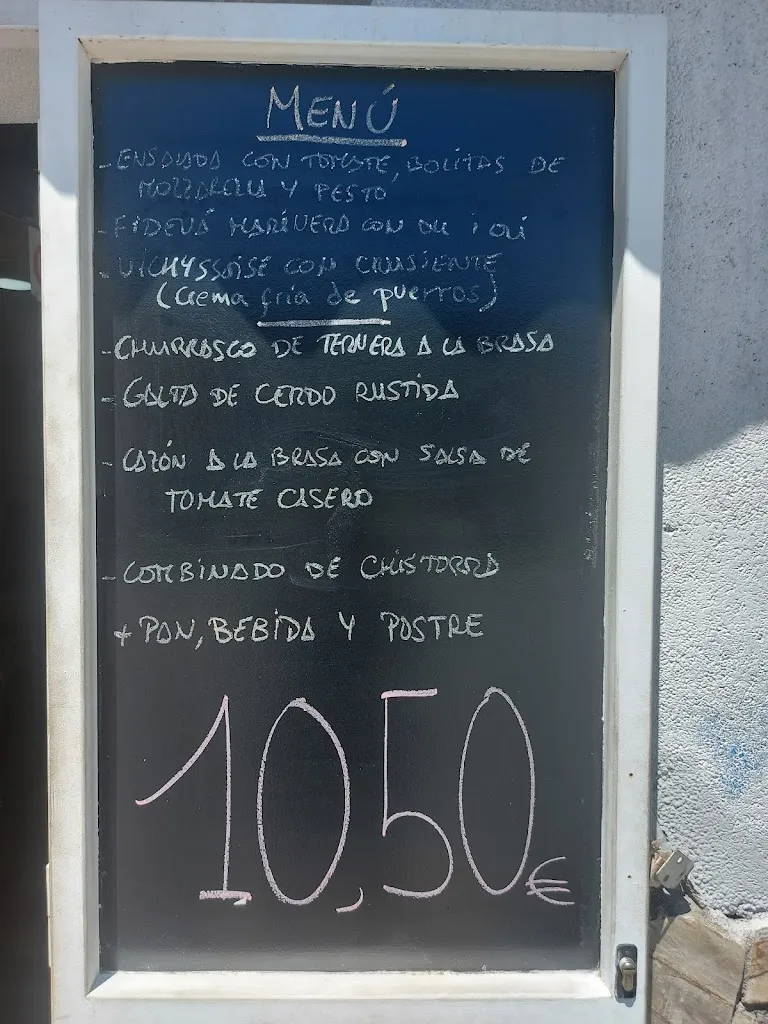 MENÚ
- ENSALADA CON TOMATE, BOLITAS DE
MOZZARELLA Y PESTO
- FIDEUÁ MARINERA CON ALL i OLI
- VICHYSSOISE CON CRUSIENTE
(Crema fría de puerros)
- CHURRASCO DE TERNERA A LA BRASA
- GALTA DE CERDO RUSTIDA
- CAZÓN A LA BRASA CON SALSA DE
TOMATE CASERO
- COMBINADO DE CHISTORRA
+ PAN, BEBIDA Y POSTRE
10,50€